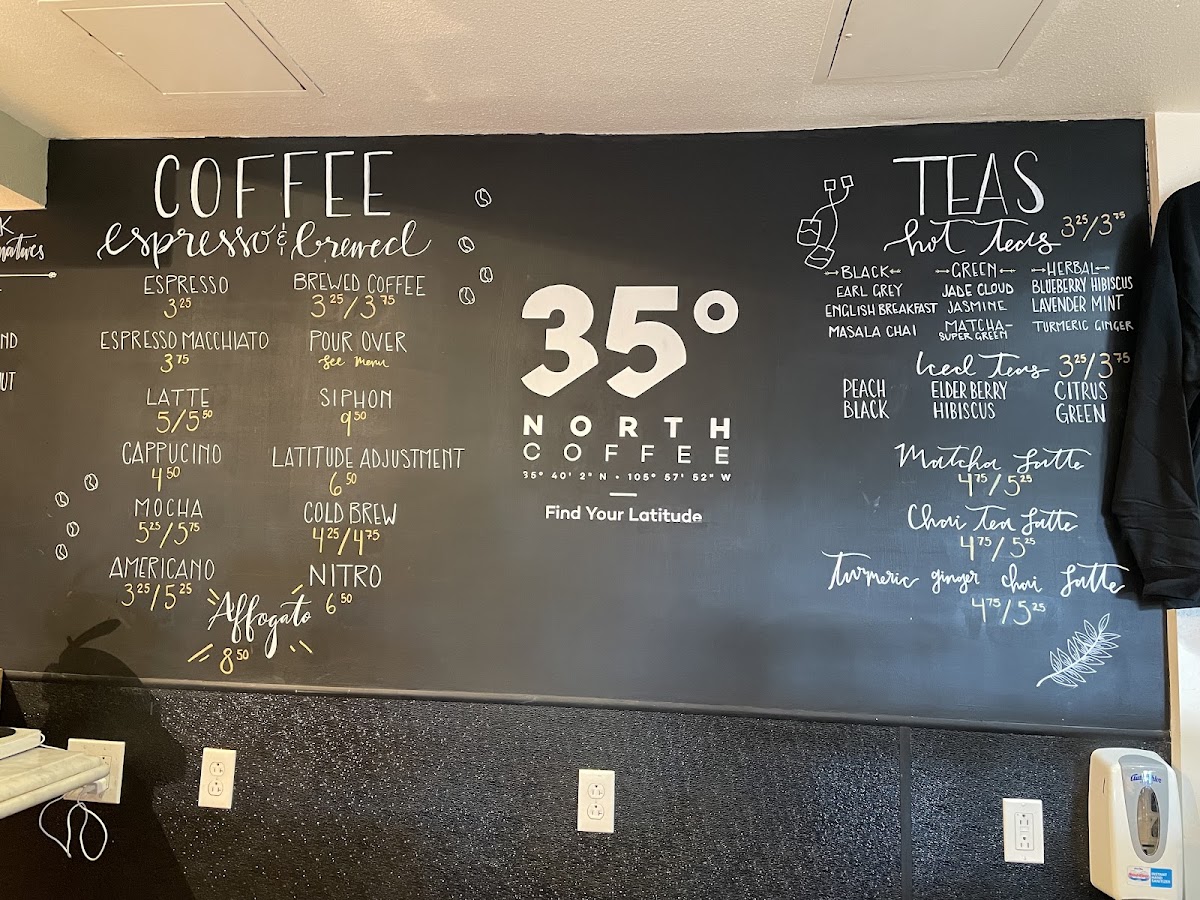 COFFEE
espresso & brewed
ESPRESSO
3 25
ESPRESSO MACCHIATO
3 75
LATTE
5/5 50
CAPPUCINO
4 50
MOCHA
5 25/5 75
AMERICANO
3 25/5 25
BREWED COFFEE
3 25/3 75
POUR OVER
See Menu
SIPHON
9 50
LATITUDE ADJUSTMENT
6 50
COLD BREW
4 25/4 75
NITRO
6 50
Affogato
8 50
35°
NORTH
COFFEE
35° 40' 2" N - 105° 57' 52" W
Find Your Latitude
TEAS
hot teas 3 25/3 75
BLACK
EARL GREY
ENGLISH BREAKFAST
MASALA CHAI
GREEN
JADE CLOUD
JASMINE
MATCHA-
SUPER GREEN
HERBAL
BLUEBERRY HIBISCUS
LAVENDER MINT
TURMERIC GINGER
Iced Teas 3 25/3 75
PEACH
BLACK
ELDERBERRY
HIBISCUS
CITRUS
GREEN
Matcha Latte
4 75/5 25
Chai Tea Latte
4 75/5 25
Turmeric ginger chai Latte
4 75/5 25